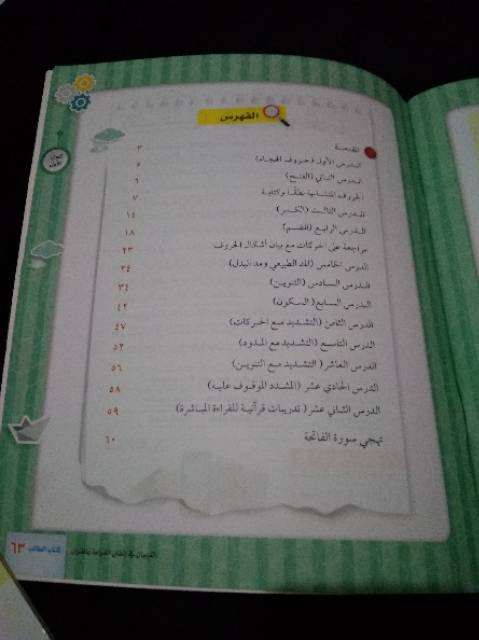 الفهرس
المقدمة ٣
الدرس الأول (حروف الهجاء) ٥
الدرس الثاني (الفتح) ٦
الحروف المتشابهة نطقًا وكتابة ٧
الدرس الثالث (الكسر) ١٤
الدرس الرابع (الضم) ١٨
مراجعة على الحركات مع بيان أشكال الحروف ٢٣
الدرس الخامس (المد الطبيعي ومد البدل) ٢٤
الدرس السادس (التنوين) ٣٤
الدرس السابع (السكون) ٤٢
الدرس الثامن (التشديد مع الحركات) ٤٧
الدرس التاسع (التشديد مع المدود) ٥٢
الدرس العاشر (التشديد مع التنوين) ٥٦
الدرس الحادي عشر (المشدد الموقوف عليه) ٥٨
الدرس الثاني عشر (تدريبات قرآنية للقراءة المباشرة) ٥٩
تهجي سورة الفاتحة ٦٠
كتاب الطالب ٦٣